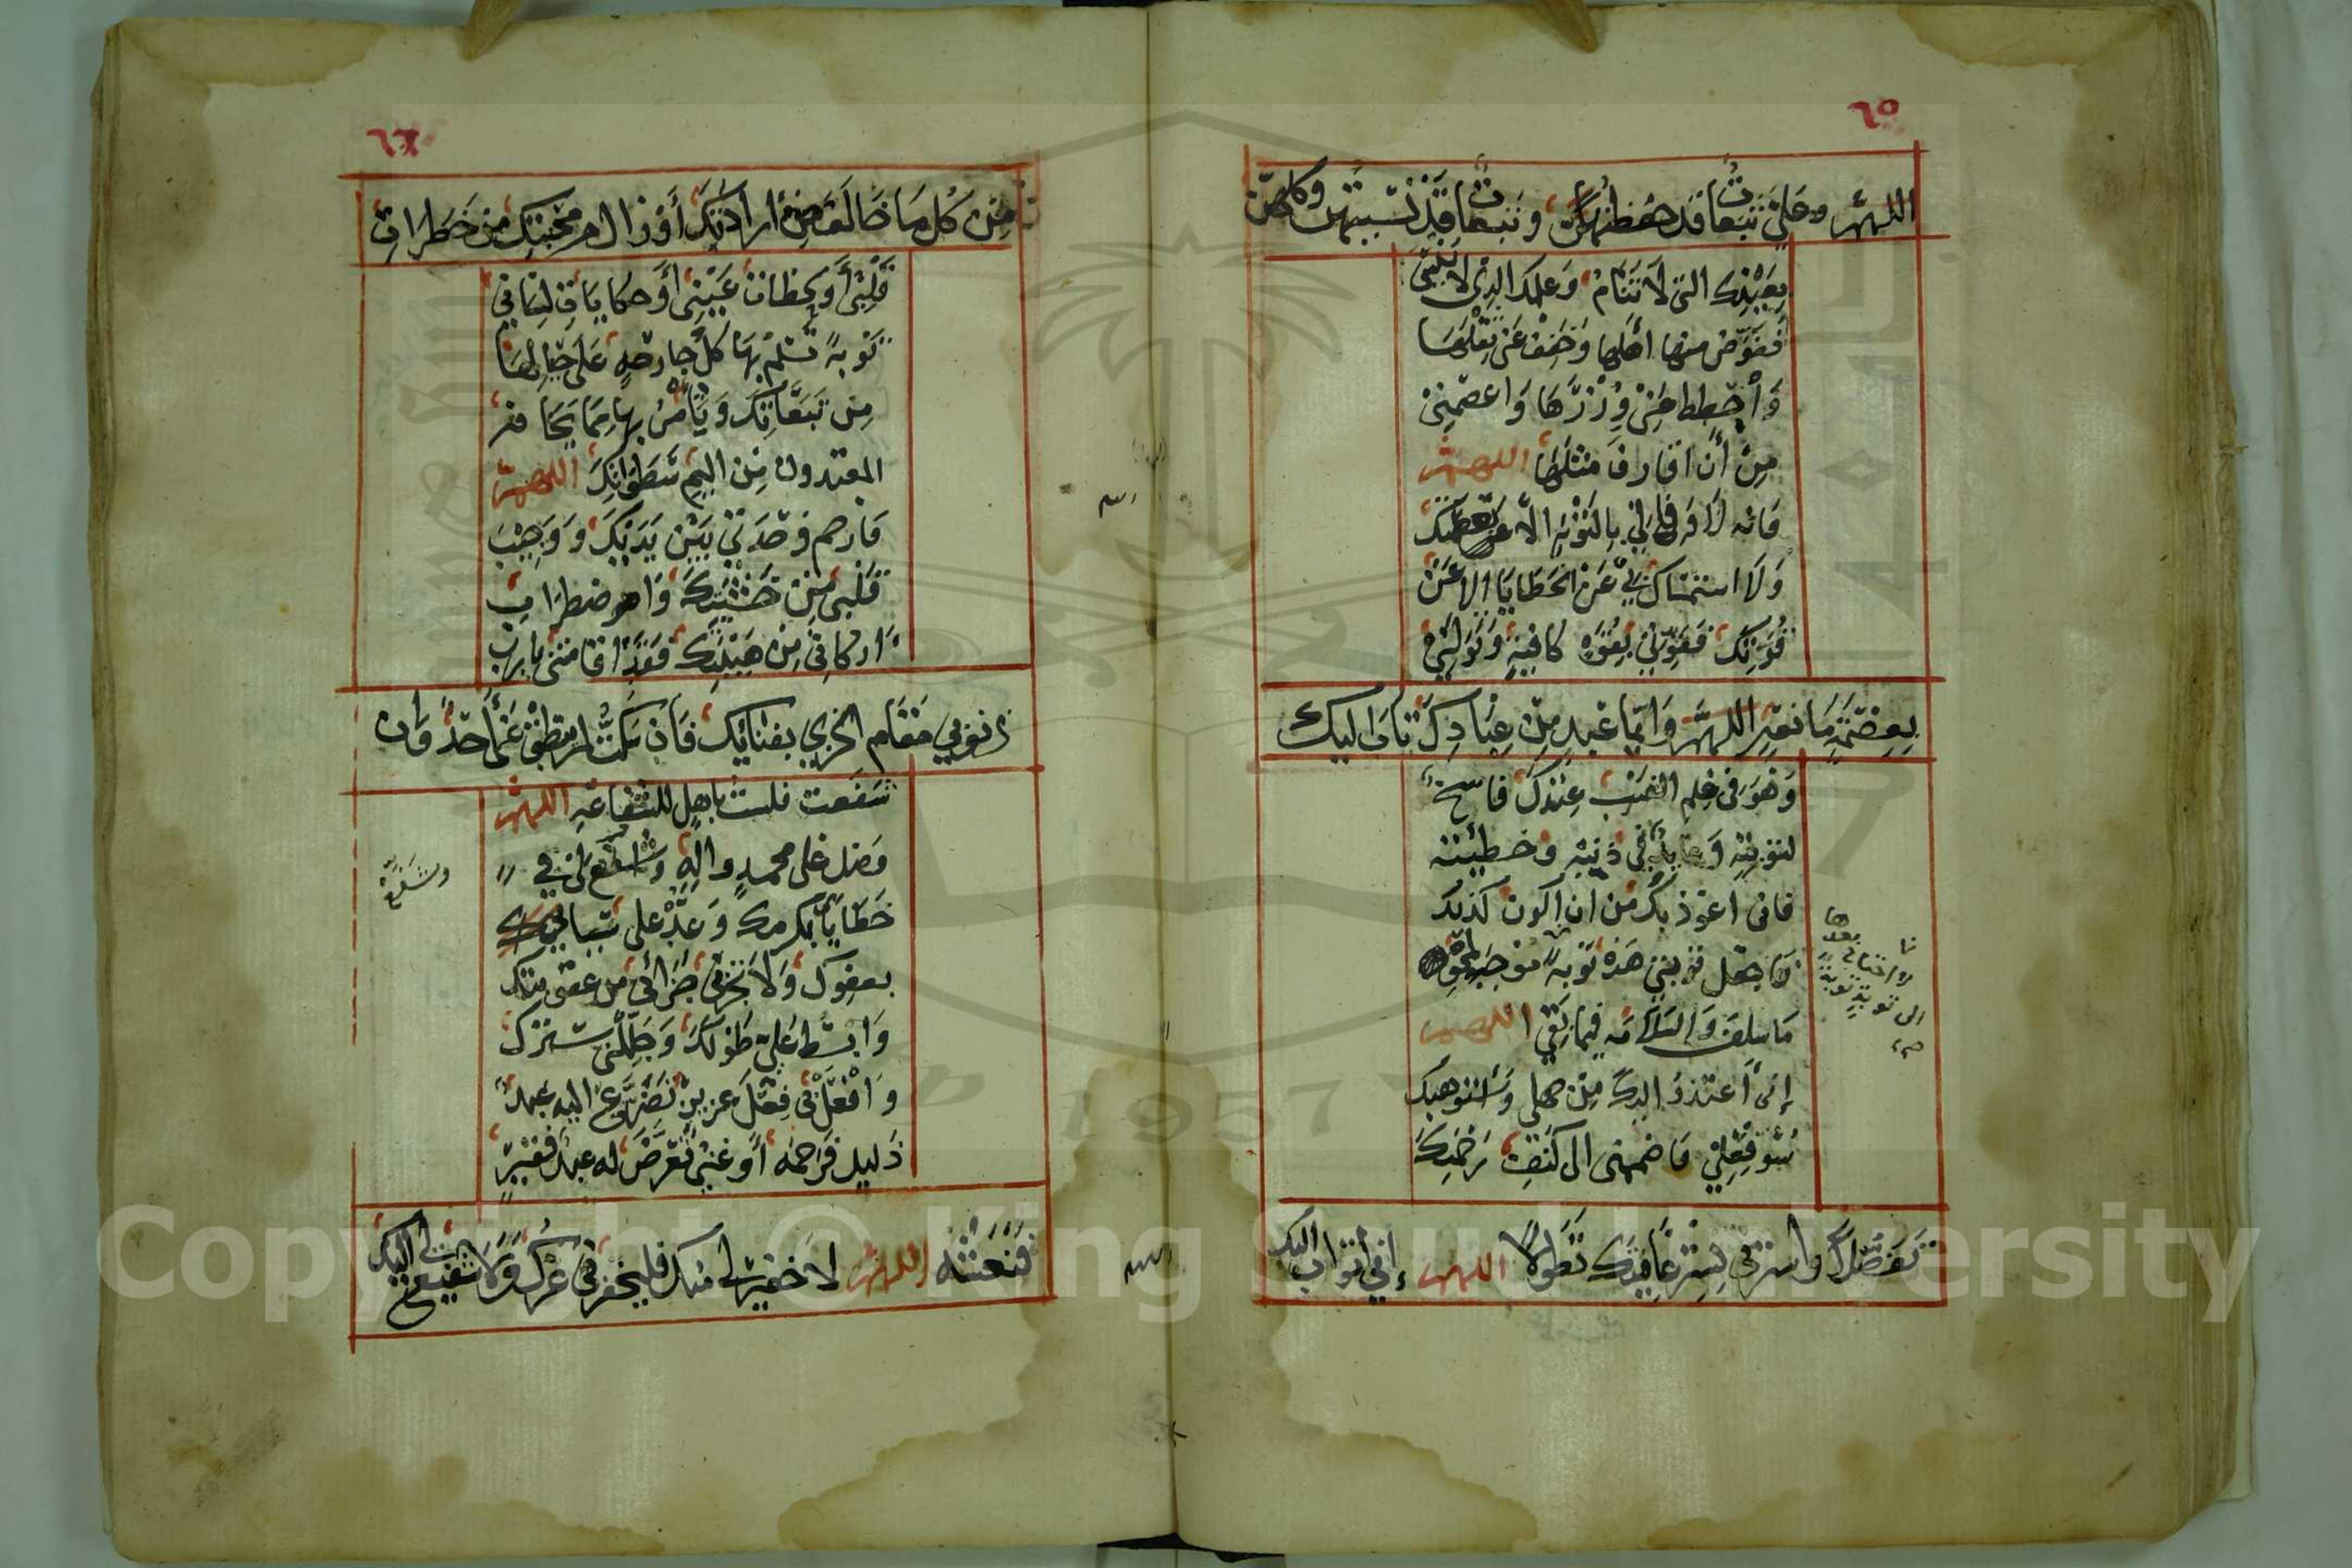 ٦٥
اللهم وعلي تبعات قد حفظتهن وتبعات قد نسيتهن وكلهن
بعينك التي لا تنام وعلمك الذي لا ينسى
فعوض منها أهلها وخفف عني ثقلها
وأحطط عني وزرها واعصمني
من أن أقارف مثلها اللهم
فانه لا وفاء لي بالتوبة الا بعصمتك
ولا استمساك بي عن الخطايا الا عن
قوتك فقوني بقوة كافية وتولني
بعصمة مانعة اللهم وايما عبد من عبادك تاب اليك
وهو في علم الغيب عندك فاسخ
لتوبته وعايد في ذنبه وخطيئته
فاني اعوذ بك من ان اكون كذلك
فاجعل توبتي هذه توبة موجبة لمحو
ما سلف والسلامة فيما بقي اللهم
إني أعتذر اليك من جهلي واستوهبك
سوء فعلي فاضممني الى كنف رحمتك
تفضلا واسترني بستر عافيتك تطولا اللهم إني أتوب اليك
نا
بعدها
لا احتاج
الى توبة توبة
صح
٦٦
من كل ما خالف من ارادتك أو زال من محبتك من خطرات
قلبي أو لحظات عيني أو حكايات لساني
توبة تسلم بها كل جارحة على حيالها
من تبعاتك ويأمن بها مما يخاف
المعتدون من اليم سطواتك اللهم
فارحم وحدتي بين يديك ووجيب
قلبي من خشيتك واضطراب
اركاني من هيبتك فقد اقامتني يا رب
ذنوبي مقام الخزي بفنائك فان سكت لم ينطق عني أحد وان
شفعت فلست باهل للشفاعة اللهم
وصل على محمد واله وشفع لي في
خطاياي كرمك وعد على سيئاتي
بعفوك ولا تجزني جزائي من عقوبتك
وابسط علي طولك وجللني سترك
وافعل في فعل عزيز تضرع اليه عبد
ذليل فرحمه أو غني تعرض له عبد فقير
وشفع
فنعشه اللهم لا خفير لي منك فليخفرني عزك ولا شفيع لي اليك